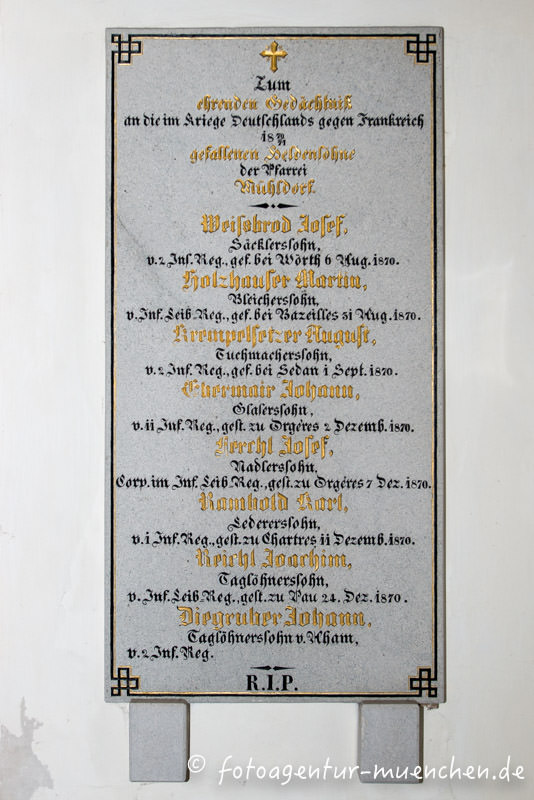 Zum
ehrenden Gedächtniß
an die im Kriege Deutschlands gegen Frankreich
18 70/71
gefallenen Heldensöhne
der Pfarrei
Mühldorf.
Weissbrod Josef,
Säcklerssohn,
v. 2 Inf. Reg., gef. bei Wörth 6 Aug. 1870.
Holzhauser Martin,
Bleicherssohn,
v. Inf. Leib Reg., gef. bei Bazeilles 31 Aug. 1870.
Krempelsetzer August,
Tuchmacherssohn,
v. 2 Inf. Reg., gef. bei Sedan 1 Sept. 1870.
Ebermair Johann,
Glaserssohn,
v. 11 Inf. Reg., gest. zu Orgères 2 Dezemb. 1870.
Ferchl Josef,
Nadlerssohn,
Corp. im Inf. Leib Reg., gest. zu Orgères 7 Dez. 1870.
Rambold Karl,
Ledererssohn,
v. 1 Inf. Reg., gest. zu Chartres 11 Dezemb. 1870.
Reichl Joachim,
Taglöhnerssohn,
v. Inf. Leib. Reg., gest. zu Pau 24. Dez. 1870.
Diegruber Johann,
Taglöhnerssohn v. Aham,
v. 2 Inf. Reg.
R.I.P.
© fotoagentur-muenchen.de